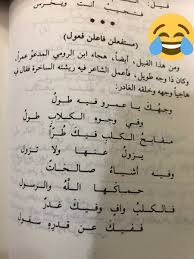 فنجيت أنت ويحس
* * *
(مستفعلن فاعلن فعول)
ومن هذا القبيل، أيضاً، هجاء ابن الرومي المدعوّ عمراً،
وكان ذا وجه طويل، فأعمل الشاعر فيه ريشته الساخرة فقال في
هاجياً وجهه وخلقه الغادر:
وجهك يا عمرو فيه طول
وفي وجوه الكلاب طول
مقابح الكلب فيك طراً
يزول عنها ولا تزول
وفيه أشياء صالحات
حماكها الله والرسول
فالكلب واف وفيك غدر
ففيك عن قدره سفول